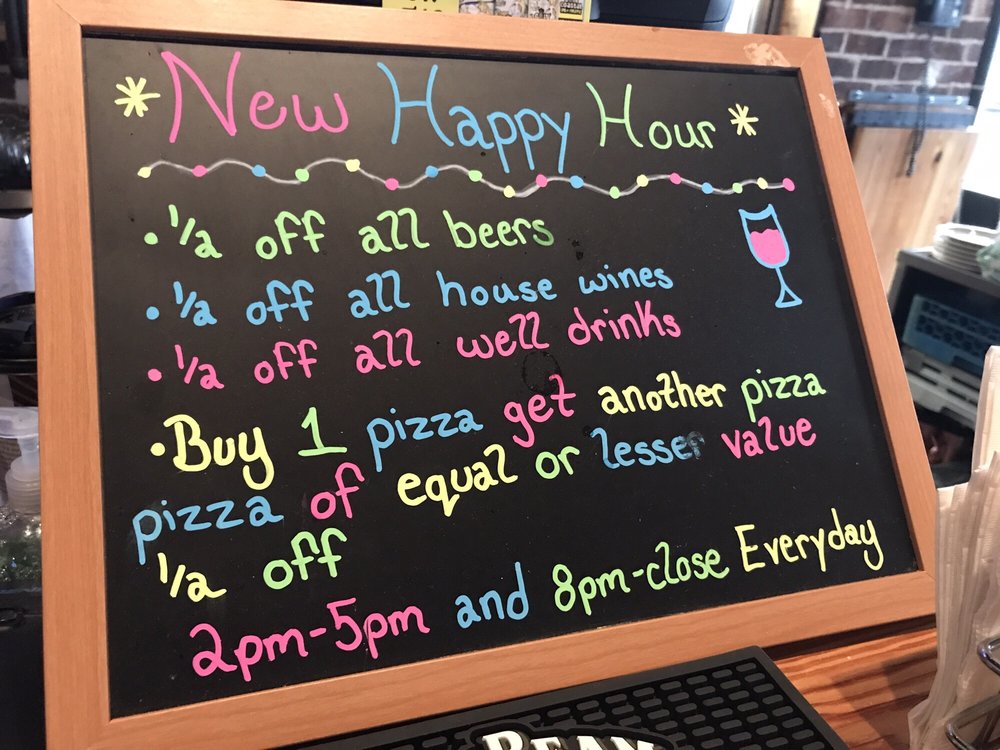 * New Happy Hour *
• 1/2 off all beers
• 1/2 off all house wines
• 1/2 off all well drinks
• Buy 1 pizza get another pizza
pizza of equal or lesser value
1/2 off
2pm-5pm and 8pm-close Everyday
BEAM